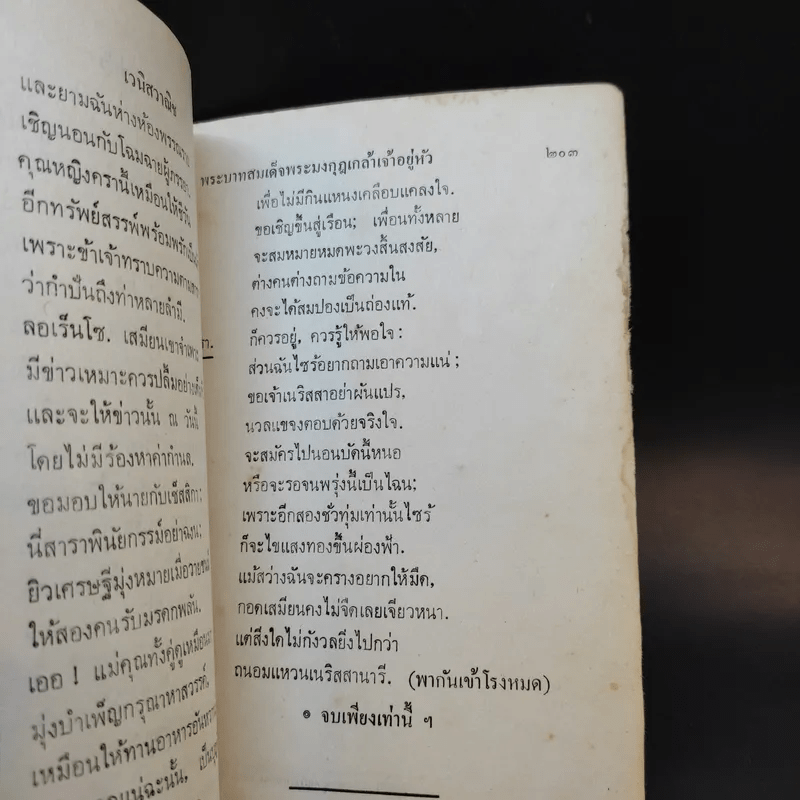 เวนิสวาณิช
และยามฉันห่างห้อง
เชิญนอนกับโฉมฉายผู้
คุณหญิงครานี้เหมือนให้
อีกทรัพย์สรรพ์พร้อม
เพราะข้าเจ้าทราบความ
ว่ากำปั่นถึงท่าหลายลำมี.
ลอเร็นโซ. เสมียนเขา
มีข่าวเหมาะควรปลื้มอย่าง
และจะให้ข่าวนั้น ณ วันนี้
โดยไม่มีร้องหาค่ากำนล.
ขอมอบให้นายกับเช็สสิกา:
นี่สาราพินัยกรรม์อย่าฉงน;
ยิวเศรษฐีมุ่งหมายเมื่อวายชนม์
ให้สองคนรับมรดกพลัน.
เออ ! แม่คุณทั้งคู่ดูเหมือน
มุ่งบำเพ็ญกรุณาหาสวรรค์,
เหมือนให้ทานอาหาร
แน่ฉะนั้น,
พระบาทสมเด็จพระมงกุฎเกล้าเจ้าอยู่หัว ๒๐๓
เพื่อไม่มีกินแหนงเคลือบแคลงใจ.
ขอเชิญขึ้นสู่เรือน; เพื่อนทั้งหลาย
จะสมหมายหมดพะวงสิ้นสงสัย,
ต่างคนต่างถามข้อความใน
คงจะได้สมปองเป็นถ่องแท้.
ก็ควรอยู่, ควรรู้ให้พอใจ :
ส่วนฉันไซร้อยากถามเอาความแน่ ;
ขอเจ้าเนริสสาอย่าผันแปร,
นวลแขจงตอบด้วยจริงใจ.
จะสมัครไปนอนบัดนี้หนอ
หรือจะรอจนพรุ่งนี้เป็นไฉน;
เพราะอีกสองชั่วทุ่มเท่านั้นไซร้
ก็จะไขแสงทองขึ้นผ่องฟ้า.
แม้สว่างฉันจะครางอยากให้มืด,
กอดเสมียนคงไม่จืดเลยเจียวหนา.
แต่สิ่งใดไม่กังวลยิ่งไปกว่า
ถนอมแหวนเนริสสานารี. (พากันเข้าโรงหมด)
๏ จบเพียงเท่านี้ ฯ